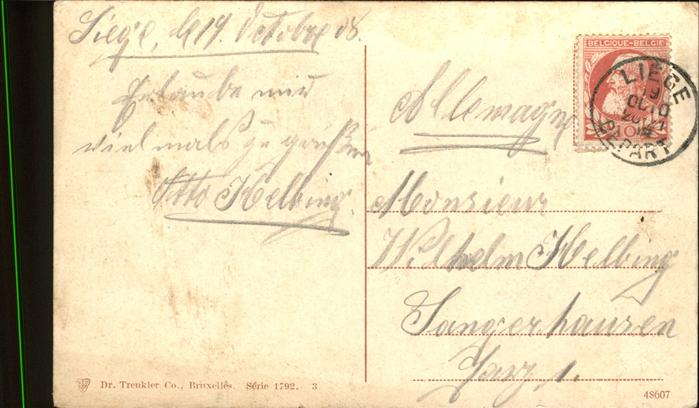 Liége, le 19. Octobre 08.
Erlaube mir
vielmals zu grüßen
Otto Helbing.
Allemagne
Monsieur
Wilhelm Helbing
Sangerhausen
Harz
BELGIQUE-BELGIË
10
LIÉGE
19
DÉPART
Dr. Trenkler Co., Bruxelles. Série 1792. 3
48607